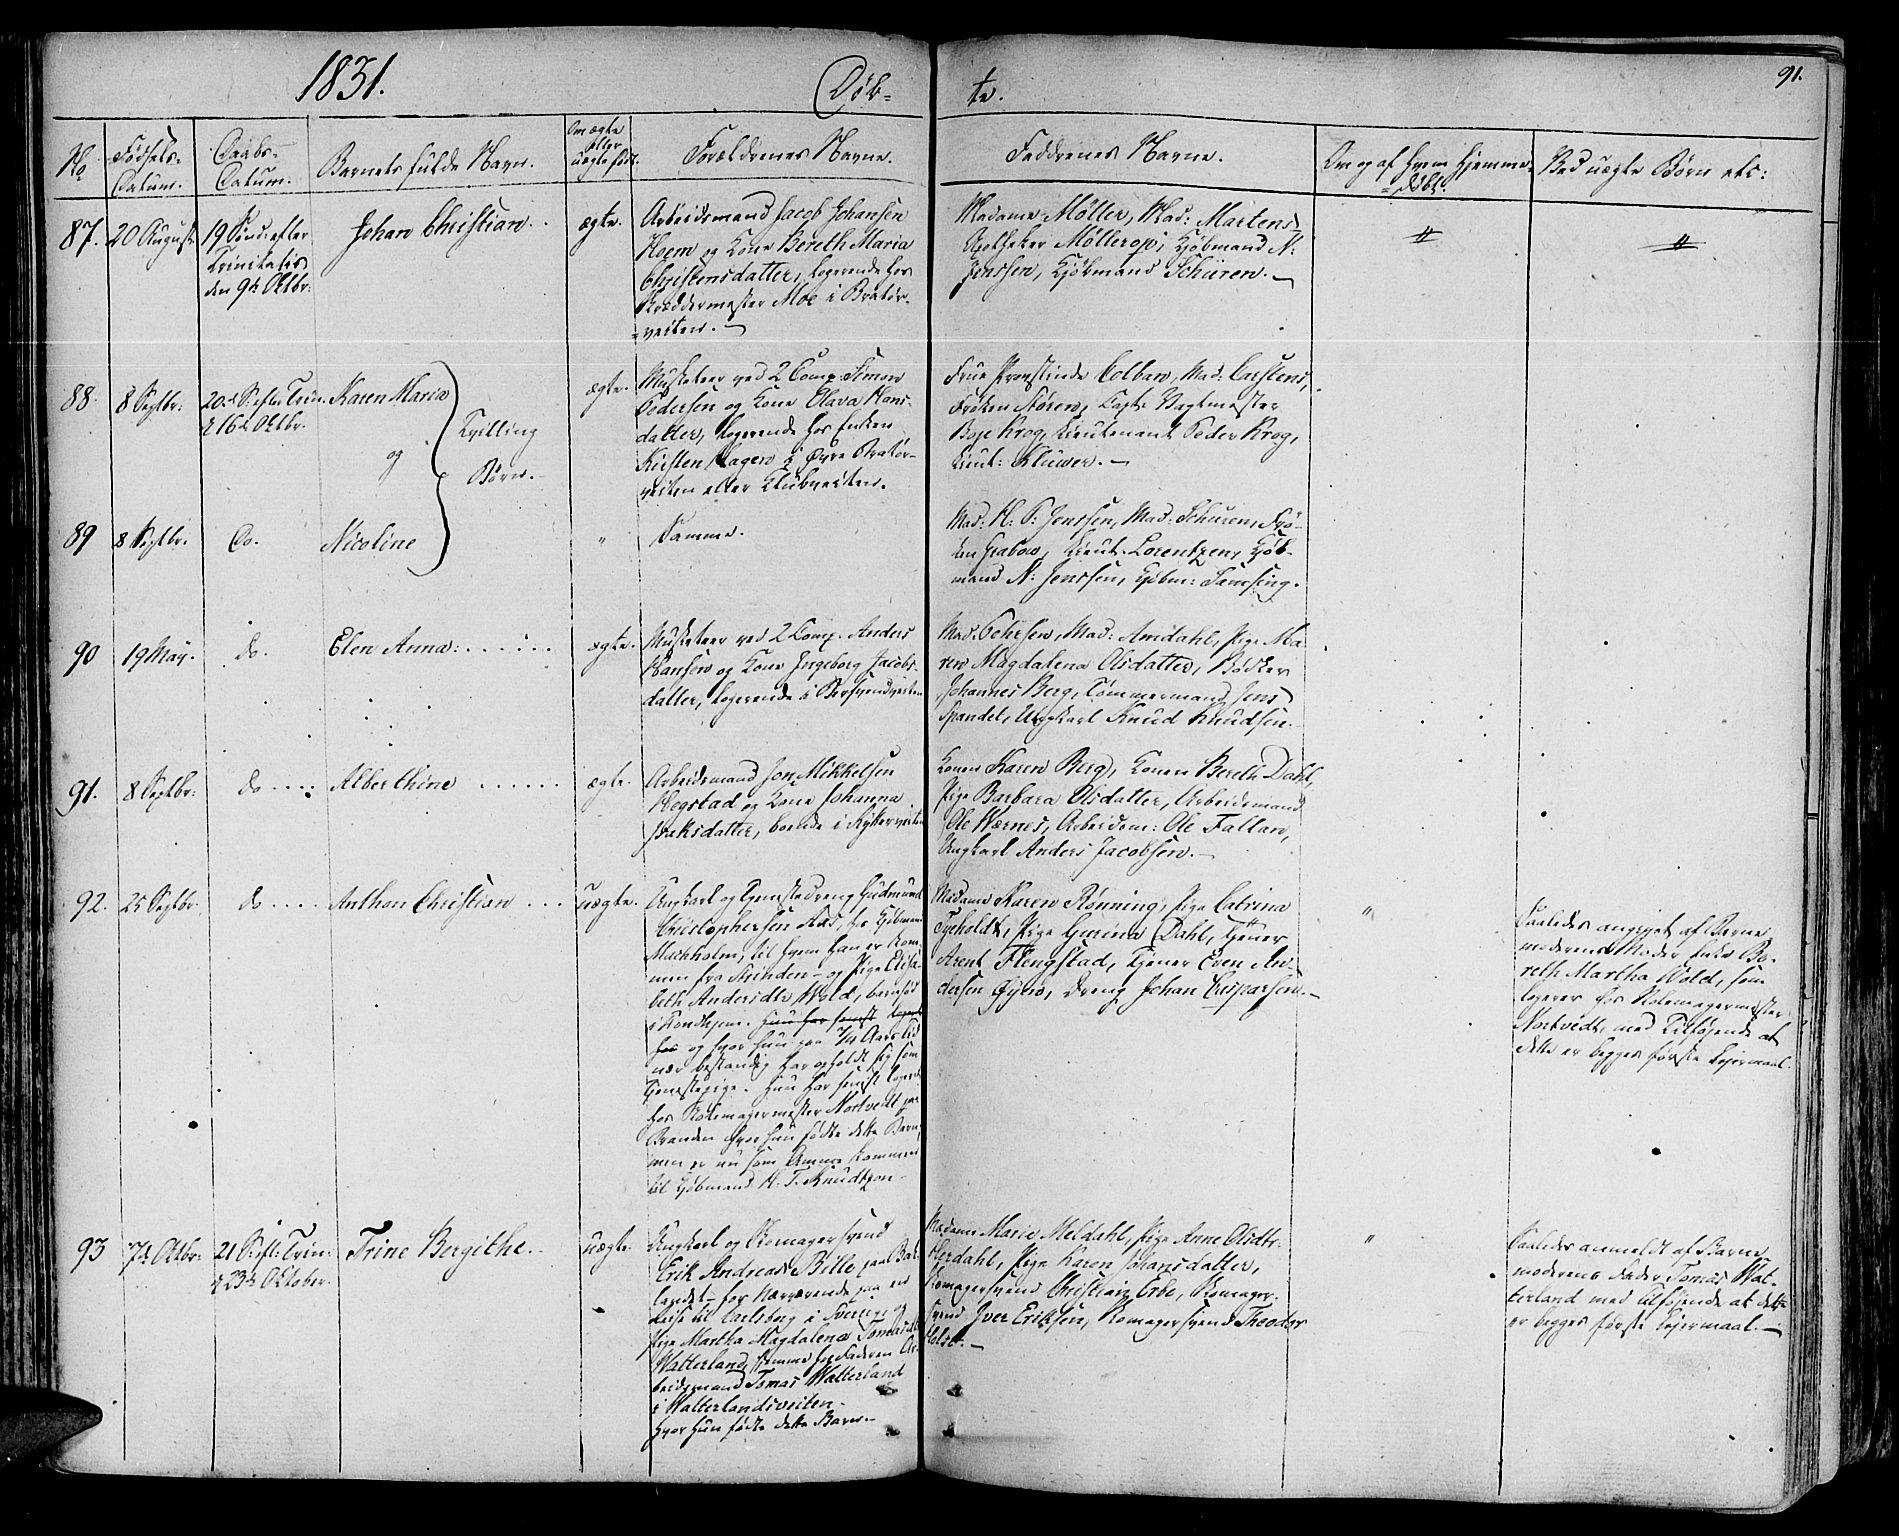 1831.
Døb-
te.
91.
No
Fødsels-
Datum.
Daabs-
Datum.
Barnets fulde Navn.
Om ægte
eller
uægte født.
Forældrenes Navne.
Faddrenes Navne.
Om og af Hvem hjemme-
døbt.
Ved uægte Børn etc:
87.
20 August
19 Sønd: efter
Trinitatis
den 9de Oktbr:
Johan Christian.
ægte.
Arbeidsmand Jacob Johansen
Hoem og Kone Bereth Maria
Christensdatter, logerende hos
Skræddermester Moe i Bratør-
veiten.
Madame Møller, Mad: Martens,
Apotheker Møllerop, Kjøbmand N:
Jenssen, Kjøbmand Schüren.
88.
8 Septbr:
20de S: efter Trin.
d 16de Oktbr.
Karen Maria
og
Tvilling
Børn.
ægte.
Musketeer ved 2 Comp. Simon
Pedersen og Kone Olava Hans-
datter, logerende hos Enken
Kirsten Hagen i Øvre Bratør-
veiten eller Klubveiten.
Frue Provstinde Colban, Mad: Carstens,
Frøken Støren, Capt: Vagtmester
Boje Krog, Lieutenant Peder Krog,
Lieut: Klüwer.
89
8 Septbr.
Do.
Nicoline
"
Samme.
Mad: H: P: Jenssen, Mad: Schüren, Frø-
ken Grabow, Lieut. Lorentzen, Kjøb-
mand N: Jenssen, Kjøbm: Samsing.
90
19 May.
do.
Elen Anna:
ægte.
Musketeer ved 2 Comp. Anders
Hansen og Kone Ingeborg Jacobs-
datter, logerende i Bersvendveiten
Mad: Petersen, Mad: Amdahl, Pige Ma-
ren Magdalena Olsdatter, Bødker
Johannes Berg, Tømmermand Jens
Spandet, Ungkarl Knud Knudsen.
91.
8 Septbr:
do
Alberthine
ægte.
Arbeidsmand Jon Mikkelsen
Hegstad og Kone Johanna
Isaksdatter, boende i Rykerveiten
Konen Karen Berg, Konen Bereth Dahl,
Pige Barbara Olsdatter, Arbeidsmand
Ole Wærnes, Arbeidsm: Ole Fallan,
Ungkarl Anders Jacobsen.
92.
25 Septbr.
do
Anthon Christian
uægte.
Ungkarl og Tjenestedreng Gudmund
Christophersen Aas, hos Kjøbmand
Machholm, til hvem han er kom-
men fra Stinden- og Pige Elisa-
beth Andersdtr Wold, barnfød
i Trondhjem. Hun har senest logeret
hos og hvor hun paa 7/4 Aars Tid
nær bestandig har opholdt sig som
Tjenestepige. Hun har senest logeret
hos Rokemagermester Nortvedt paa
Branden hvor hun fødte dette Barn,
men er nu som Amme kommen
til Kjøbmand H. T. Knudtzon
Madame Karen Rønning, Pige Catrina
Tyeholdt, Pige Gurina Dahl, Tjener
Arent Flengstad, Tjener Even An-
dersen Øyen, Dreng Johan Casparsen.
"
Saaledes angivet af Barne
moderens Moder Enke Be-
reth Martha Wold, som
logerer hos Rokemagermester
Nortvedt, med Tilføjende at
dette er begges første Lejermaal.
93
7de Oktbr:
21 S: eft: Trin:
d 23de Oktober.
Trine Bergithe.
uægte.
Ungkarl og Skomagersvend
Erik Andreas Bille paa Bak-
landet- for Nærværende paa en
Reise til Carlsborg i Sverige og
Pige Martha Magdalena Tomasdtr
Watterland, hjemme hos Faderen Ar-
beidsmand Tomas Watterland
i Watterlandsveiten
hvor hun fødte dette Barn.
Madame Marie Meldahl, Pige Anne Olsdtr:
Herdahl, Pige Karen Johansdatter,
Skomagersvend Christian Erbe, Skomager-
svend Iver Eriksen, Skomagersvend Theodor
Holst.
"
Saaledes anmeldt af Barne
moderens Fader Tomas Wat-
terland med Tilføjende at dette
er begges første Lejermaal.